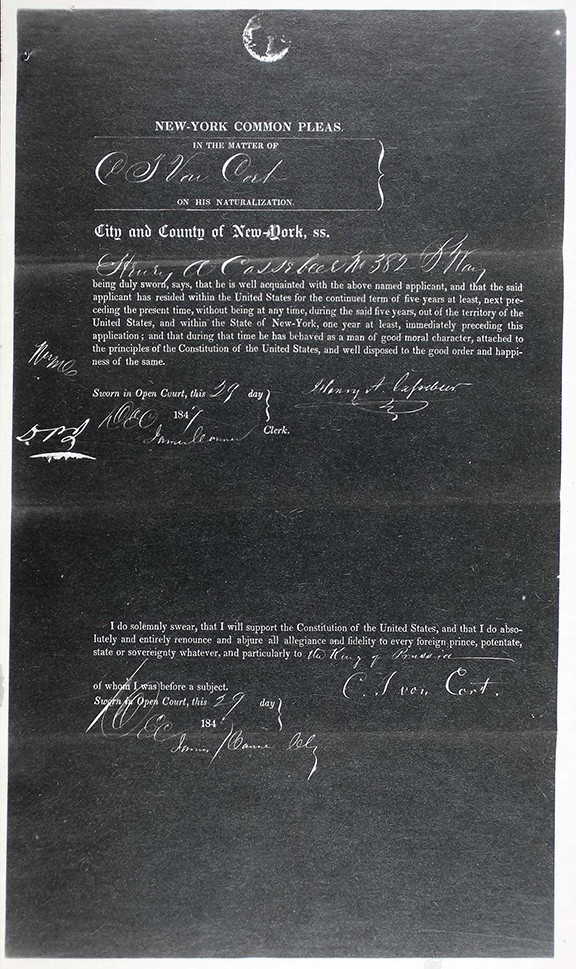 NEW-YORK COMMON PLEAS.
IN THE MATTER OF
C J Von Cort
ON HIS NATURALIZATION.
City and County of New-York, ss.
Henry A Cassebeer No 382 B Way
being duly sworn, says, that he is well acquainted with the above named applicant, and that the said
applicant has resided within the United States for the continued term of five years at least, next pre-
ceding the present time, without being at any time, during the said five years, out of the territory of the
United States, and within the State of New-York, one year at least, immediately preceding this
application; and that during that time he has behaved as a man of good moral character, attached to
the principles of the Constitution of the United States, and well disposed to the good order and happi-
ness of the same.
Sworn in Open Court, this 29 day
Henry A Cassebeer
DEC 1847
Clerk.
I do solemnly swear, that I will support the Constitution of the United States, and that I do abso-
lutely and entirely renounce and abjure all allegiance and fidelity to every foreign prince, potentate,
state or sovereignty whatever, and particularly to the King of Prussia
of whom I was before a subject.
C. J von Cort.
Sworn in Open Court, this 29 day
Dec 184